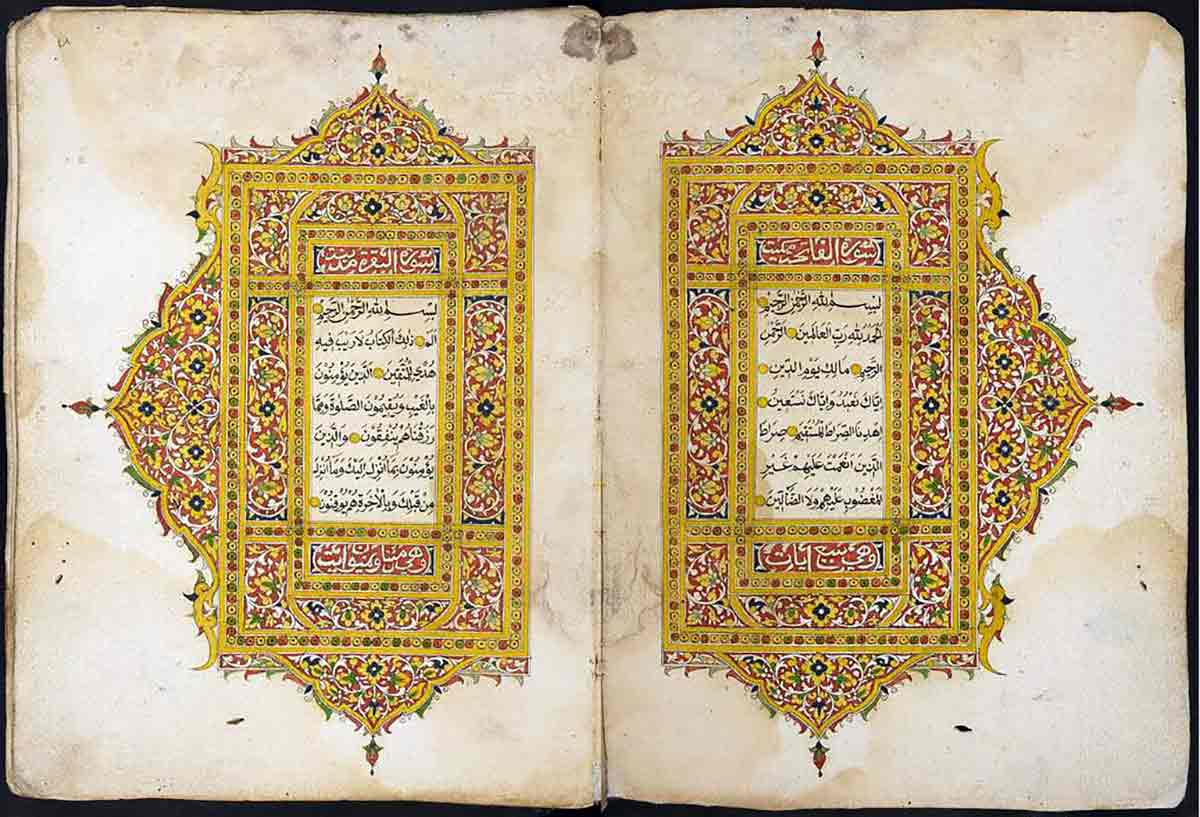 سُورَةُ الْفَاتِحَةِ مَكِّيَّةٌ
بِسْمِ اللهِ الرَّحْمٰنِ الرَّحِيْمِ
اَلْحَمْدُ لِلّٰهِ رَبِّ الْعَالَمِيْنَ الرَّحْمٰنِ
الرَّحِيْمِ مَالِكِ يَوْمِ الدِّيْنِ
اِيَّاكَ نَعْبُدُ وَاِيَّاكَ نَسْتَعِيْنُ
اِهْدِنَا الصِّرَاطَ الْمُسْتَقِيْمَ صِرَاطَ
الَّذِيْنَ اَنْعَمْتَ عَلَيْهِمْ غَيْرِ
الْمَغْضُوْبِ عَلَيْهِمْ وَلَا الضَّالِّيْنَ
وَهِيَ سَبْعُ اٰيَاتٍ
سُورَةُ الْبَقَرَةِ مَدَنِيَّةٌ
بِسْمِ اللهِ الرَّحْمٰنِ الرَّحِيْمِ
الم ذٰلِكَ الْكِتَابُ لَا رَيْبَ فِيْهِ
هُدًى لِلْمُتَّقِيْنَ الَّذِيْنَ يُؤْمِنُوْنَ
بِالْغَيْبِ وَيُقِيْمُوْنَ الصَّلٰوةَ وَمِمَّا
رَزَقْنَاهُمْ يُنْفِقُوْنَ وَالَّذِيْنَ
يُؤْمِنُوْنَ بِمَا اُنْزِلَ اِلَيْكَ وَمَا اُنْزِلَ
مِنْ قَبْلِكَ وَبِالْاٰخِرَةِ هُمْ يُوْقِنُوْنَ
وَهِيَ